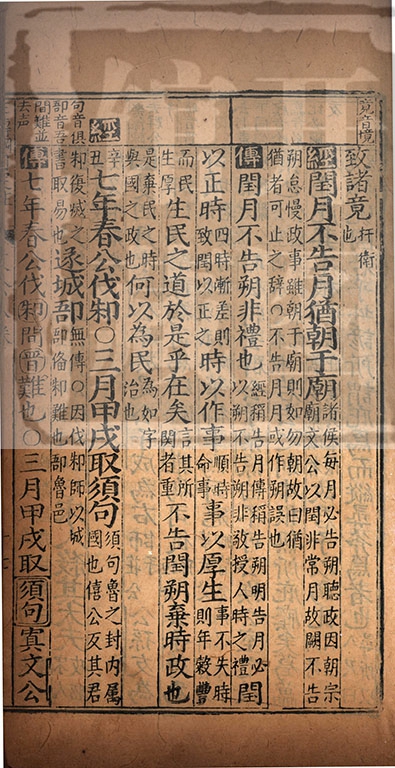 竟音境
致諸竟扞衛也
經閏月不告月猶朝于廟諸侯每月必告朔聽政因朝宗廟文公以閏非常月故闕不告
朔怠慢政事雖朝于廟則如勿朝故曰猶猶者可止之辭○不告月月或作朔誤也
傳閏月不告朔非禮也經稱告月傳稱告朔明告月必以朔不告朔非敬授人時之禮閏
以正時四時漸差則致閏以正之時以作事順時命事事以厚生事不失時則年穀豐
而民生厚生民之道於是乎在矣言其所闕者重不告閏朔棄時政也
是棄民之時與國之政也何以為民為如字
經辛丑七年春公伐邾○三月甲戌取須句須句魯之封內屬國也僖公反其君
句音俱
郚音吾
邾復滅之書取易也遂城郚無傳○因伐邾師以城郚備邾難也郚魯邑
間難並去声
傳七年春公伐邾間晉難也○三月甲戌取須句寘文公